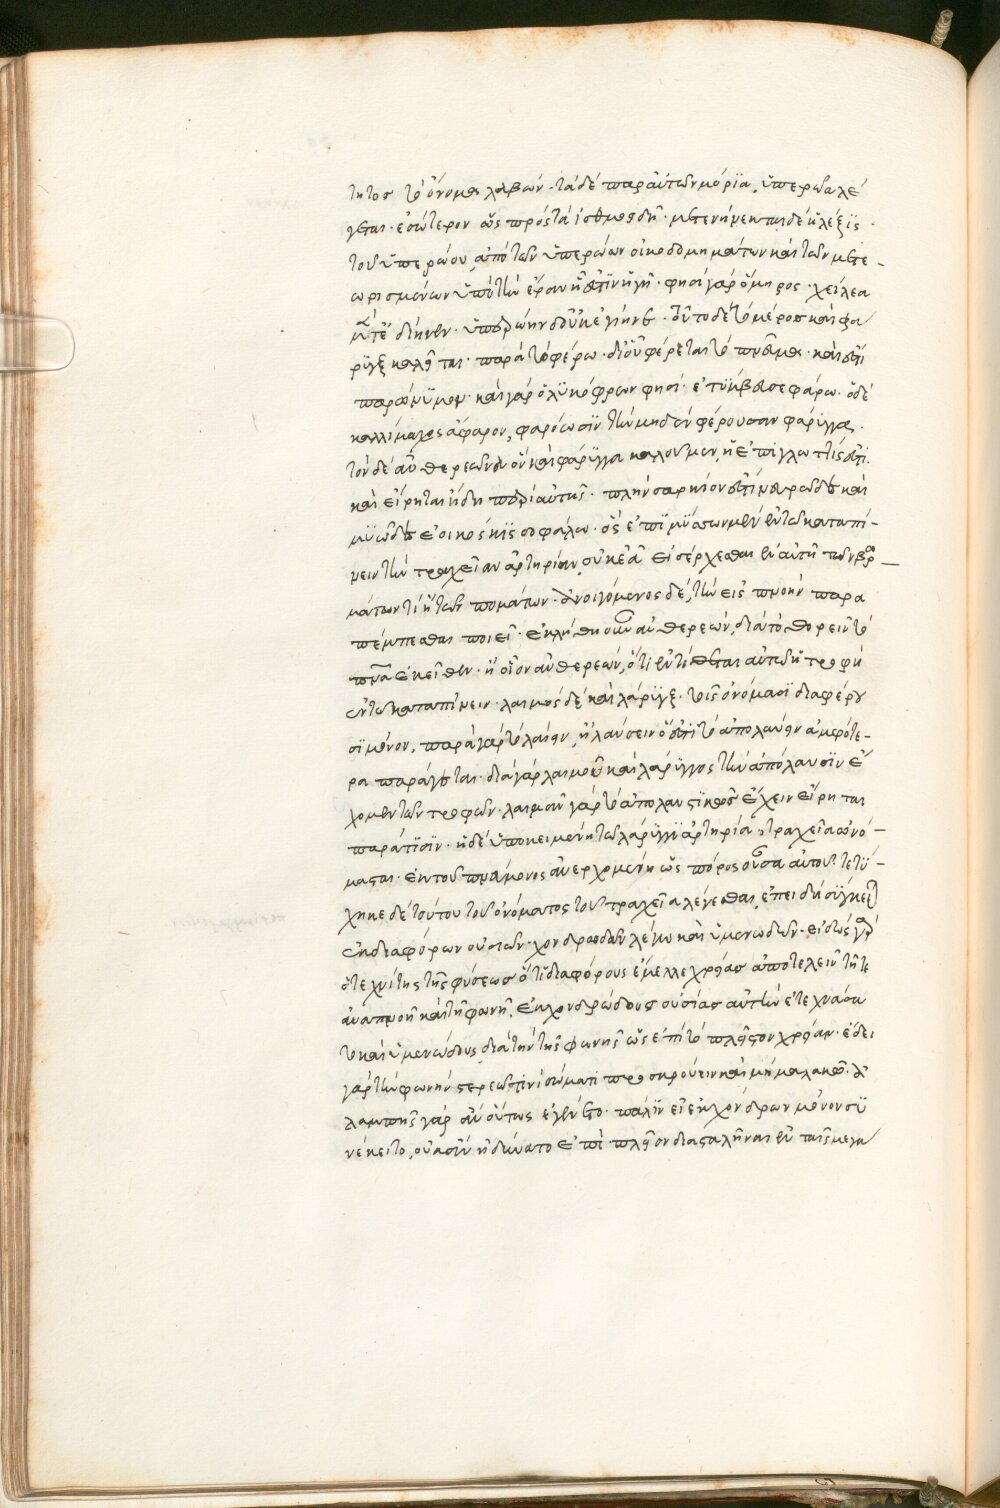 τητος τὸ ὄνομα λαβὼν· τὰ δὲ παρ αὐτῶν μόρϊα, ὑπερῶα λέ
γεται· ἐσώτερον ὡς πρὸς τὰ ἰσθμοῦ· μετενήνεκται δὲ ἡ λέξϊς·
τοῦ ὑπερώου, ἀπὸ τῶν ὑπερώων οἰκοδομημάτων καὶ τῶν μετε-
ωρισμένων ὑπὸ τὴν ἔραν ἥ ἐστϊν ἡ γῆ· φησὶ γὰρ ὅμηρος· χείλεα
μέν τ' ἐδίηνεν· ὑπερώην δ' οὐκ ἐδίηνε· οὗτο δὲ τὸ μέρος καὶ φά
ρϋγξ καλεῖται· παρὰ τὸ φέρω· δϊ οὗ φέρεται τὸ πνεῦμα· καὶ ἐστὶ
παρώνϋμον· καὶ γὰρ ὁ λϋκόφρων φησί· ἐτύμβευσε φάρω· ὁ δὲ
καλλίμαχος ἄφαρον, φαρόωσϊν τὴν μηδὲν φέρουσαν φάρϋγγα·
τὸν δὲ ἀνθερεῶνα ὃν καὶ φάρϋγγα καλοῦμεν, ἡ ἐπϊγλωττίς ἐστϊ·
καὶ εἴρηται ἤδη περὶ αὐτῆς· πλὴν σαρκίον ἐστὶ νευρῶδες καὶ
μϋῶδες ἐοικὸς κϊσσοφύλλω· ὃς ἐπϊμϋάσων μὲν ἐν τῶ καταπί-
νειν τὴν τραχεῖαν ἀρτηρίαν, οὐκ ἐᾶ εἰσέρχεσθαι ἐν αὐτῆ τῶν βρω-
μάτων τί ἢ τῶν πομάτων· ἀνοιγόμενος δὲ, τὴν εἰς πνοὴν παρα
πέμπεσθαι ποιεῖ· ἐκλήθη οὖν ἀνθερεών, διὰ τὸ θορεῖν τὸ
πνεῦμα ἐκεῖθεν· ἢ οἷον ἀνθερεών, ὅτι ἐντίθεται αὐτῶ ἡ τροφὴ
ἐν τῶ καταπίνειν· λαιμὸς δὲ καὶ λάρϋγξ· τοῖς ὀνόμασϊ διαφέρου
σϊ μόνον, παρὰ γὰρ τὸ λαύειν, ἢ λαύσειν ὅ ἐστϊ τὸ ἀπολαύειν ἀμφότε-
ρα παράγεται· διὰ γὰρ λαιμοῦ καὶ λάρϋγγος τὴν ἀπόλαυσϊν ἔ
χομεν τῶν τροφῶν· λαιμᾶν γὰρ τὸ ἀπολαυστϊκῶς ἔχειν εἴρηται
παρά τϊσϊν· ἡ δὲ ὑποκειμένη τῶ λάρϋγγϊ ἀρτηρία τραχεῖα ὠνό-
μασται· ἐκ τοῦ πνεύμονος ἀνερχομένη ὡς πόρος οὖσα αὐτοῦ· τετϋ-
χηκε δὲ τούτου τοῦ ὀνόματος τοῦ τραχεῖα λέγεσθαι, ἐπειδὴ σύγκειται
ἐκ διαφόρων οὐσιῶν· χονδρωδῶν λέγω καὶ ὑμενωδῶν· εἰδὼς γὰρ
ὁ τεχνίτης τῆς φύσεως ὅτϊ διαφόρους ἔμελλε χρείας ἀποτελεῖν τῆ τε
ἀναπνοῆ καὶ τῆ φωνῆ, ἐκ χονδρώδους οὐσίας αὐτὴν ἐτεχνάσα
το καὶ ὑμενώδους, διὰ τὴν τῆς φωνῆς ὡς ἐπὶ τὸ πλεῖστον χρείαν· ἔδει
γὰρ τὴν φωνὴν στερεῶ τϊνὶ σώματι προσκρούειν καὶ μὴ μαλακῶ· ἀ
λαμπὴς γὰρ ἂν οὕτως ἐγένετο· πάλϊν εἰ ἐκ χόνδρων μόνον σϋ
νέκειτο, οὐκ ἂν ἠδύνατο ἐπὶ πλεῖον διασταλῆναι ἐν ταῖς μεγα